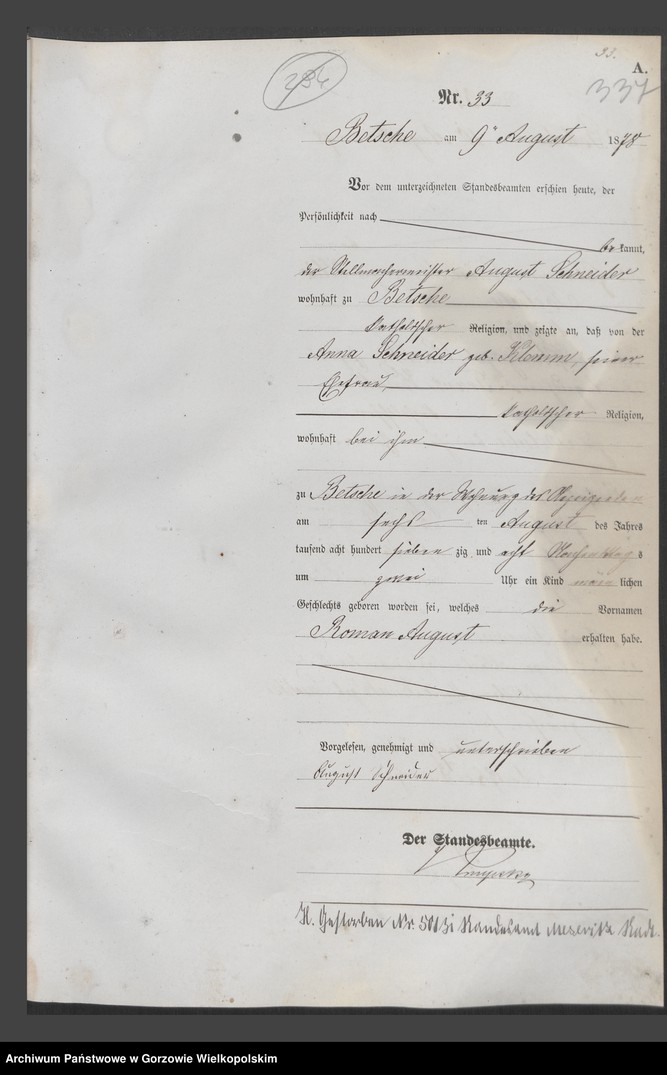 33.
A.
337
Nr. 33
Betsche am 9ⁿ August 1878
Vor dem unterzeichneten Standesbeamten erschien heute, der
Persönlichkeit nach
be kannt,
der Stellmachermeister August Schneider
wohnhaft zu Betsche
katholischer Religion, und zeigte an, daß von der
Anna Schneider geb. Klemm, seiner
Ehefrau
katholischer Religion,
wohnhaft bei ihm
zu Betsche in der Wohnung des
am sechs ten August des Jahres
tausend acht hundert sieben zig und acht Nachmittag s
um zwei Uhr ein Kind männ lichen
Geschlechts geboren worden sei, welches die Vornamen
Roman August erhalten habe.
Vorgelesen, genehmigt und unterschrieben
August Schneider
Der Standesbeamte.
Gestorben Nr. Standesamt Meseritz Stadt.
Archiwum Państwowe w Gorzowie Wielkopolskim